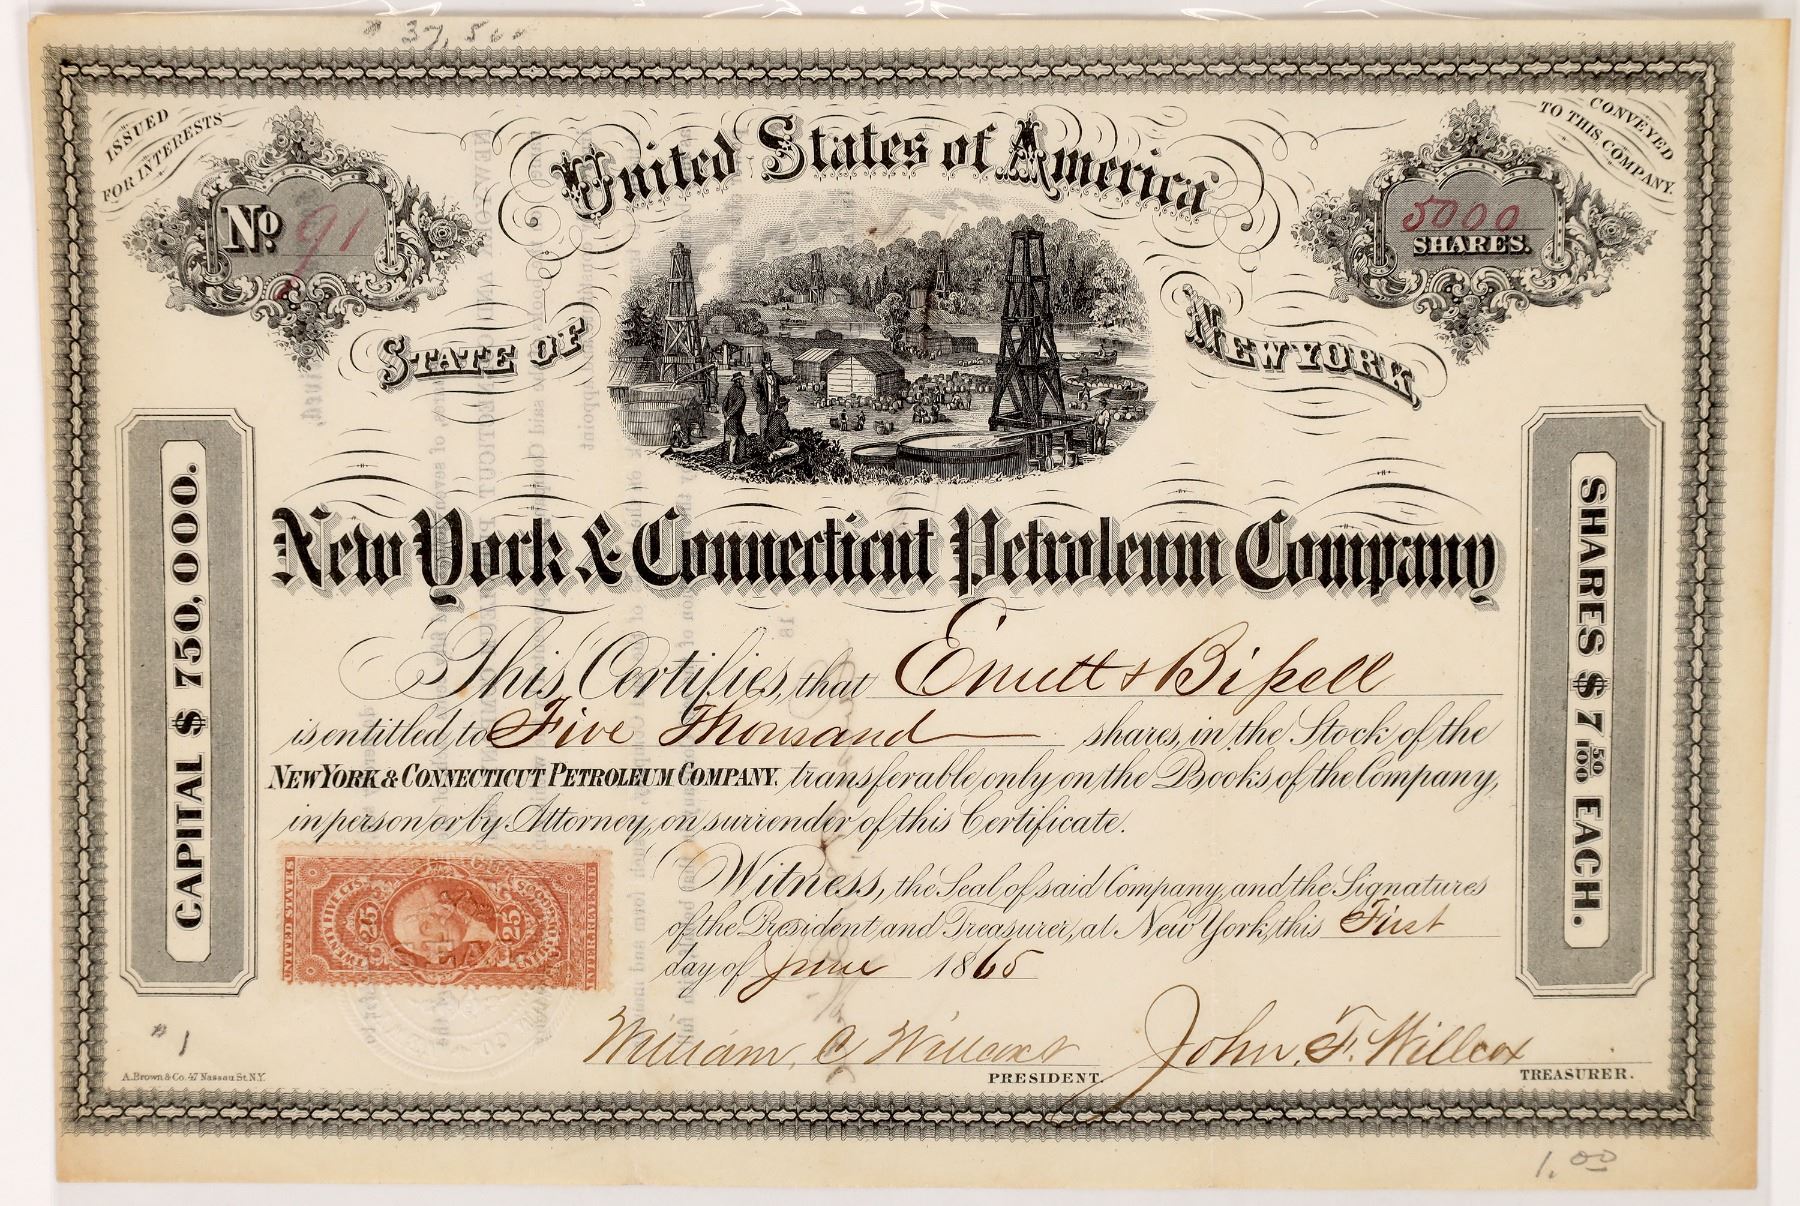 $ 37,500
ISSUED
FOR INTERESTS
CONVEYED
TO THIS COMPANY.
United States of America
No. 91
5000
SHARES.
STATE OF
NEW YORK
CAPITAL $ 750,000.
SHARES $ 7 50/100 EACH.
New York & Connecticut Petroleum Company
This Certifies, that Emett & Bißell
is entitled to Five Thousand shares, in the Stock of the
NEW YORK & CONNECTICUT PETROLEUM COMPANY, transferable only on the Books of the Company,
in person or by Attorney, on surrender of this Certificate.
Witness, the Seal of said Company, and the Signatures
of the President and Treasurer, at New York, this First
day of June 1865
UNITED STATES
TWENTY FIVE CTS.
25
25
INTER. REVENUE
# 1
William C Willcox
PRESIDENT.
John F. Willcox
TREASURER.
A. Brown & Co. 47 Nassau St. N.Y.
1.00